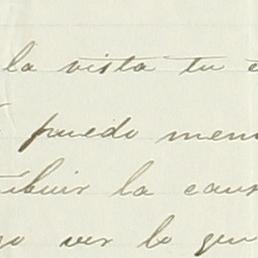 la vista tu
puedo men
tibuir la caus
ver lo que